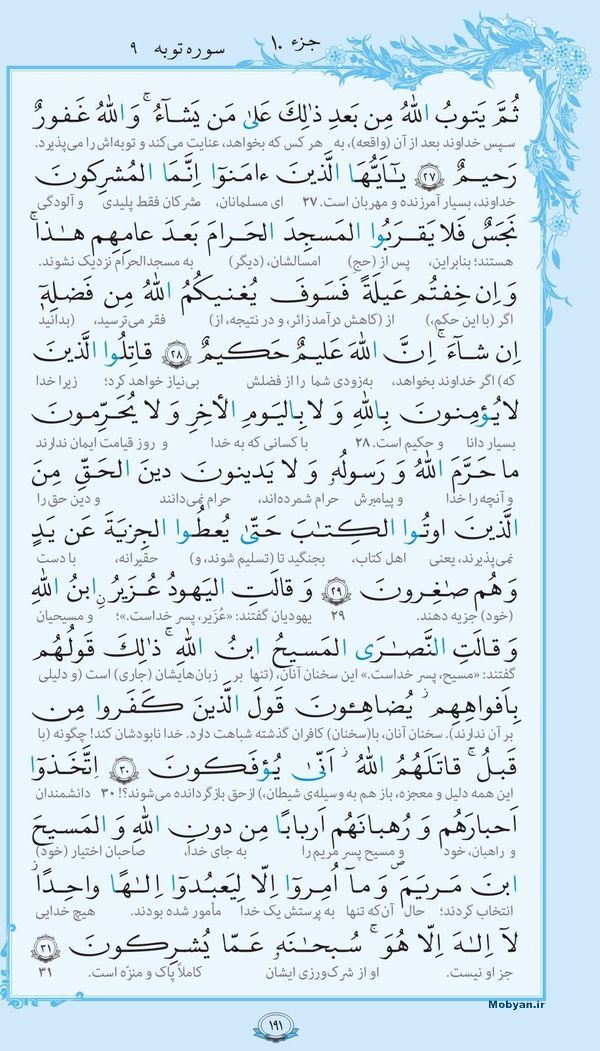 جزء ۱۰
سوره توبه ۹
ثُمَّ يَتوبُ اللهُ مِن بَعدِ ذٰلِكَ عَلىٰ مَن يَشآءُ ۚ وَ اللهُ غَفورٌ
سپس خداوند بعد از آن (واقعه)، به هر کس که بخواهد، عنایت می‌کند و توبه‌اش را می‌پذیرد.
رَحيمٌ ﴿۲۷﴾ يٰـاَيُّهَا الَّذينَ ءامَنوا اِنَّمَا المُشرِكونَ
خداوند، بسیار آمرزنده و مهربان است. ۲۷ ای مسلمانان، مشرکان فقط پلیدی و آلودگی
نَجَسٌ فَلا يَقرَبُوا المَسجِدَ الحَرامَ بَعدَ عامِهِم هٰذا ۚ
هستند؛ بنابراین، پس از (حج) امسالشان، (دیگر) به مسجدالحرام نزدیک نشوند.
وَ اِن خِفتُم عَيلَةً فَسَوفَ يُغنيكُمُ اللهُ مِن فَضلِهٖ
اگر (با این حکم،) از (کاهش درآمد زائر، و در نتیجه، از) فقر می‌ترسید، (بدانید
اِن شآءَ ۚ اِنَّ اللهَ عَليمٌ حَكيمٌ ﴿۲۸﴾ قاتِلُوا الَّذينَ
که) اگر خداوند بخواهد، به‌زودی شما را از فضلش بی‌نیاز خواهد کرد؛ زیرا خدا
لا يُؤمِنونَ بِاللهِ وَ لا بِاليَومِ الأخِرِ وَ لا يُحَرِّمونَ
بسیار دانا و حکیم است. ۲۸ با کسانی که به خدا و روز قیامت ایمان ندارند
ما حَرَّمَ اللهُ وَ رَسولُهٗ وَ لا يَدينونَ دينَ الحَقِّ مِنَ
و آنچه را خدا و پیامبرش حرام شمرده‌اند، حرام نمی‌دانند و دین حق را
الَّذينَ اوتُوا الكِتٰبَ حَتّىٰ يُعطُوا الجِزيَةَ عَن يَدٍ
نمی‌پذیرند، یعنی اهل کتاب، بجنگید تا (تسلیم شوند، و) حقیرانه، با دست
وَ هُم صٰغِرونَ ﴿۲۹﴾ وَ قالَتِ اليَهودُ عُزَيرٌ ابنُ اللهِ
(خود) جزیه دهند. ۲۹ یهودیان گفتند: «عُزَیر، پسر خداست.»؛ و مسیحیان
وَ قالَتِ النَّصٰرَى المَسيحُ ابنُ اللهِ ۚ ذٰلِكَ قَولُهُم
گفتند: «مسیح، پسر خداست.» این سخنان آنان، (تنها بر زبان‌هایشان (جاری) است (و دلیلی
بِاَفواهِهِم ۖ يُضاهِـئونَ قَولَ الَّذينَ كَفَروا مِن
بر آن ندارند). سخنان آنان، با(سخنان) کافران گذشته شباهت دارد. خدا نابودشان کند! چگونه (با
قَبلُ ۚ قاتَلَهُمُ اللهُ ۖ اَنّىٰ يُؤفَكونَ ﴿۳۰﴾ اِتَّخَذوا
این همه دلیل و معجزه، باز هم به وسیله‌ی شیطان،) از حق بازگردانده می‌شوند؟! ۳۰ دانشمندان
اَحبارَهُم وَ رُهبانَهُم اَربابًا مِن دونِ اللهِ وَ المَسيحَ
و راهبان، خود و مسیح پسر مریم را به جای خدا، صاحبان اختیار (خود)
ابنَ مَريَمَ وَ مآ اُمِروا اِلّا لِيَعبُدوا اِلٰـهًا واحِدًا ۖ
انتخاب کردند؛ حال آن‌که تنها به پرستش یک خدا مأمور شده بودند. هیچ خدایی
لآ اِلٰهَ اِلّا هُوَ ۚ سُبحٰنَهٗ عَمّا يُشرِكونَ ﴿۳۱﴾
جز او نیست. او از شرک‌ورزی ایشان کاملاً پاک و منزّه است. ۳۱
۱۹۱
Mobyan.ir